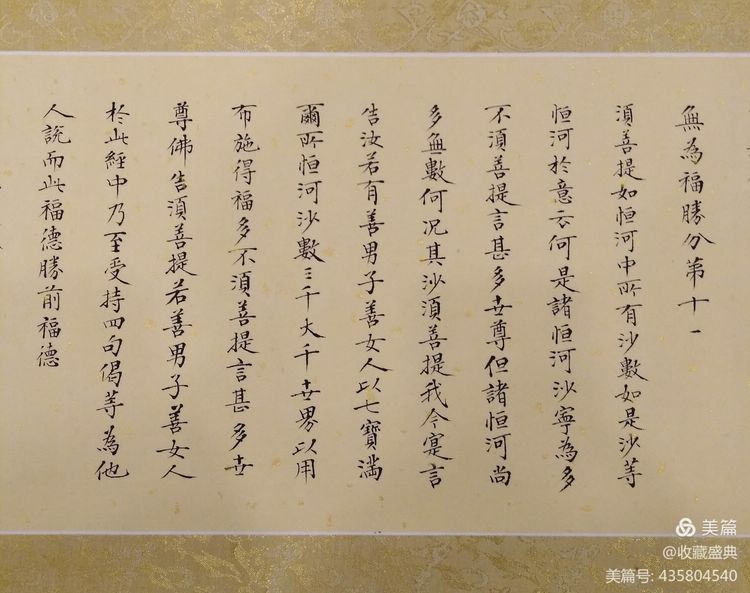 無為福勝分第十一
須菩提如恒河中所有沙數如是沙等
恒河於意云何是諸恒河沙寧為多
不須菩提言甚多世尊但諸恒河尚
多無數何况其沙須菩提我今寔言
告汝若有善男子善女人以七寶滿
爾所恒河沙數三千大千世界以用
布施得福多不須菩提言甚多世
尊佛告須菩提若善男子善女人
於此經中乃至受持四句偈等為他
人說而此福德勝前福德
美篇
@收藏盛典
美篇号: 435804540